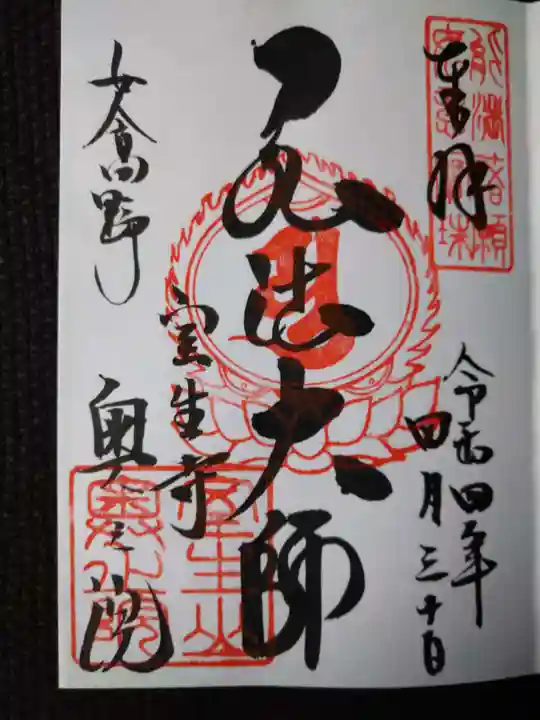 奉拝
令和四年
四月三十日
弘法大師
室生寺
女人高野
奥之院